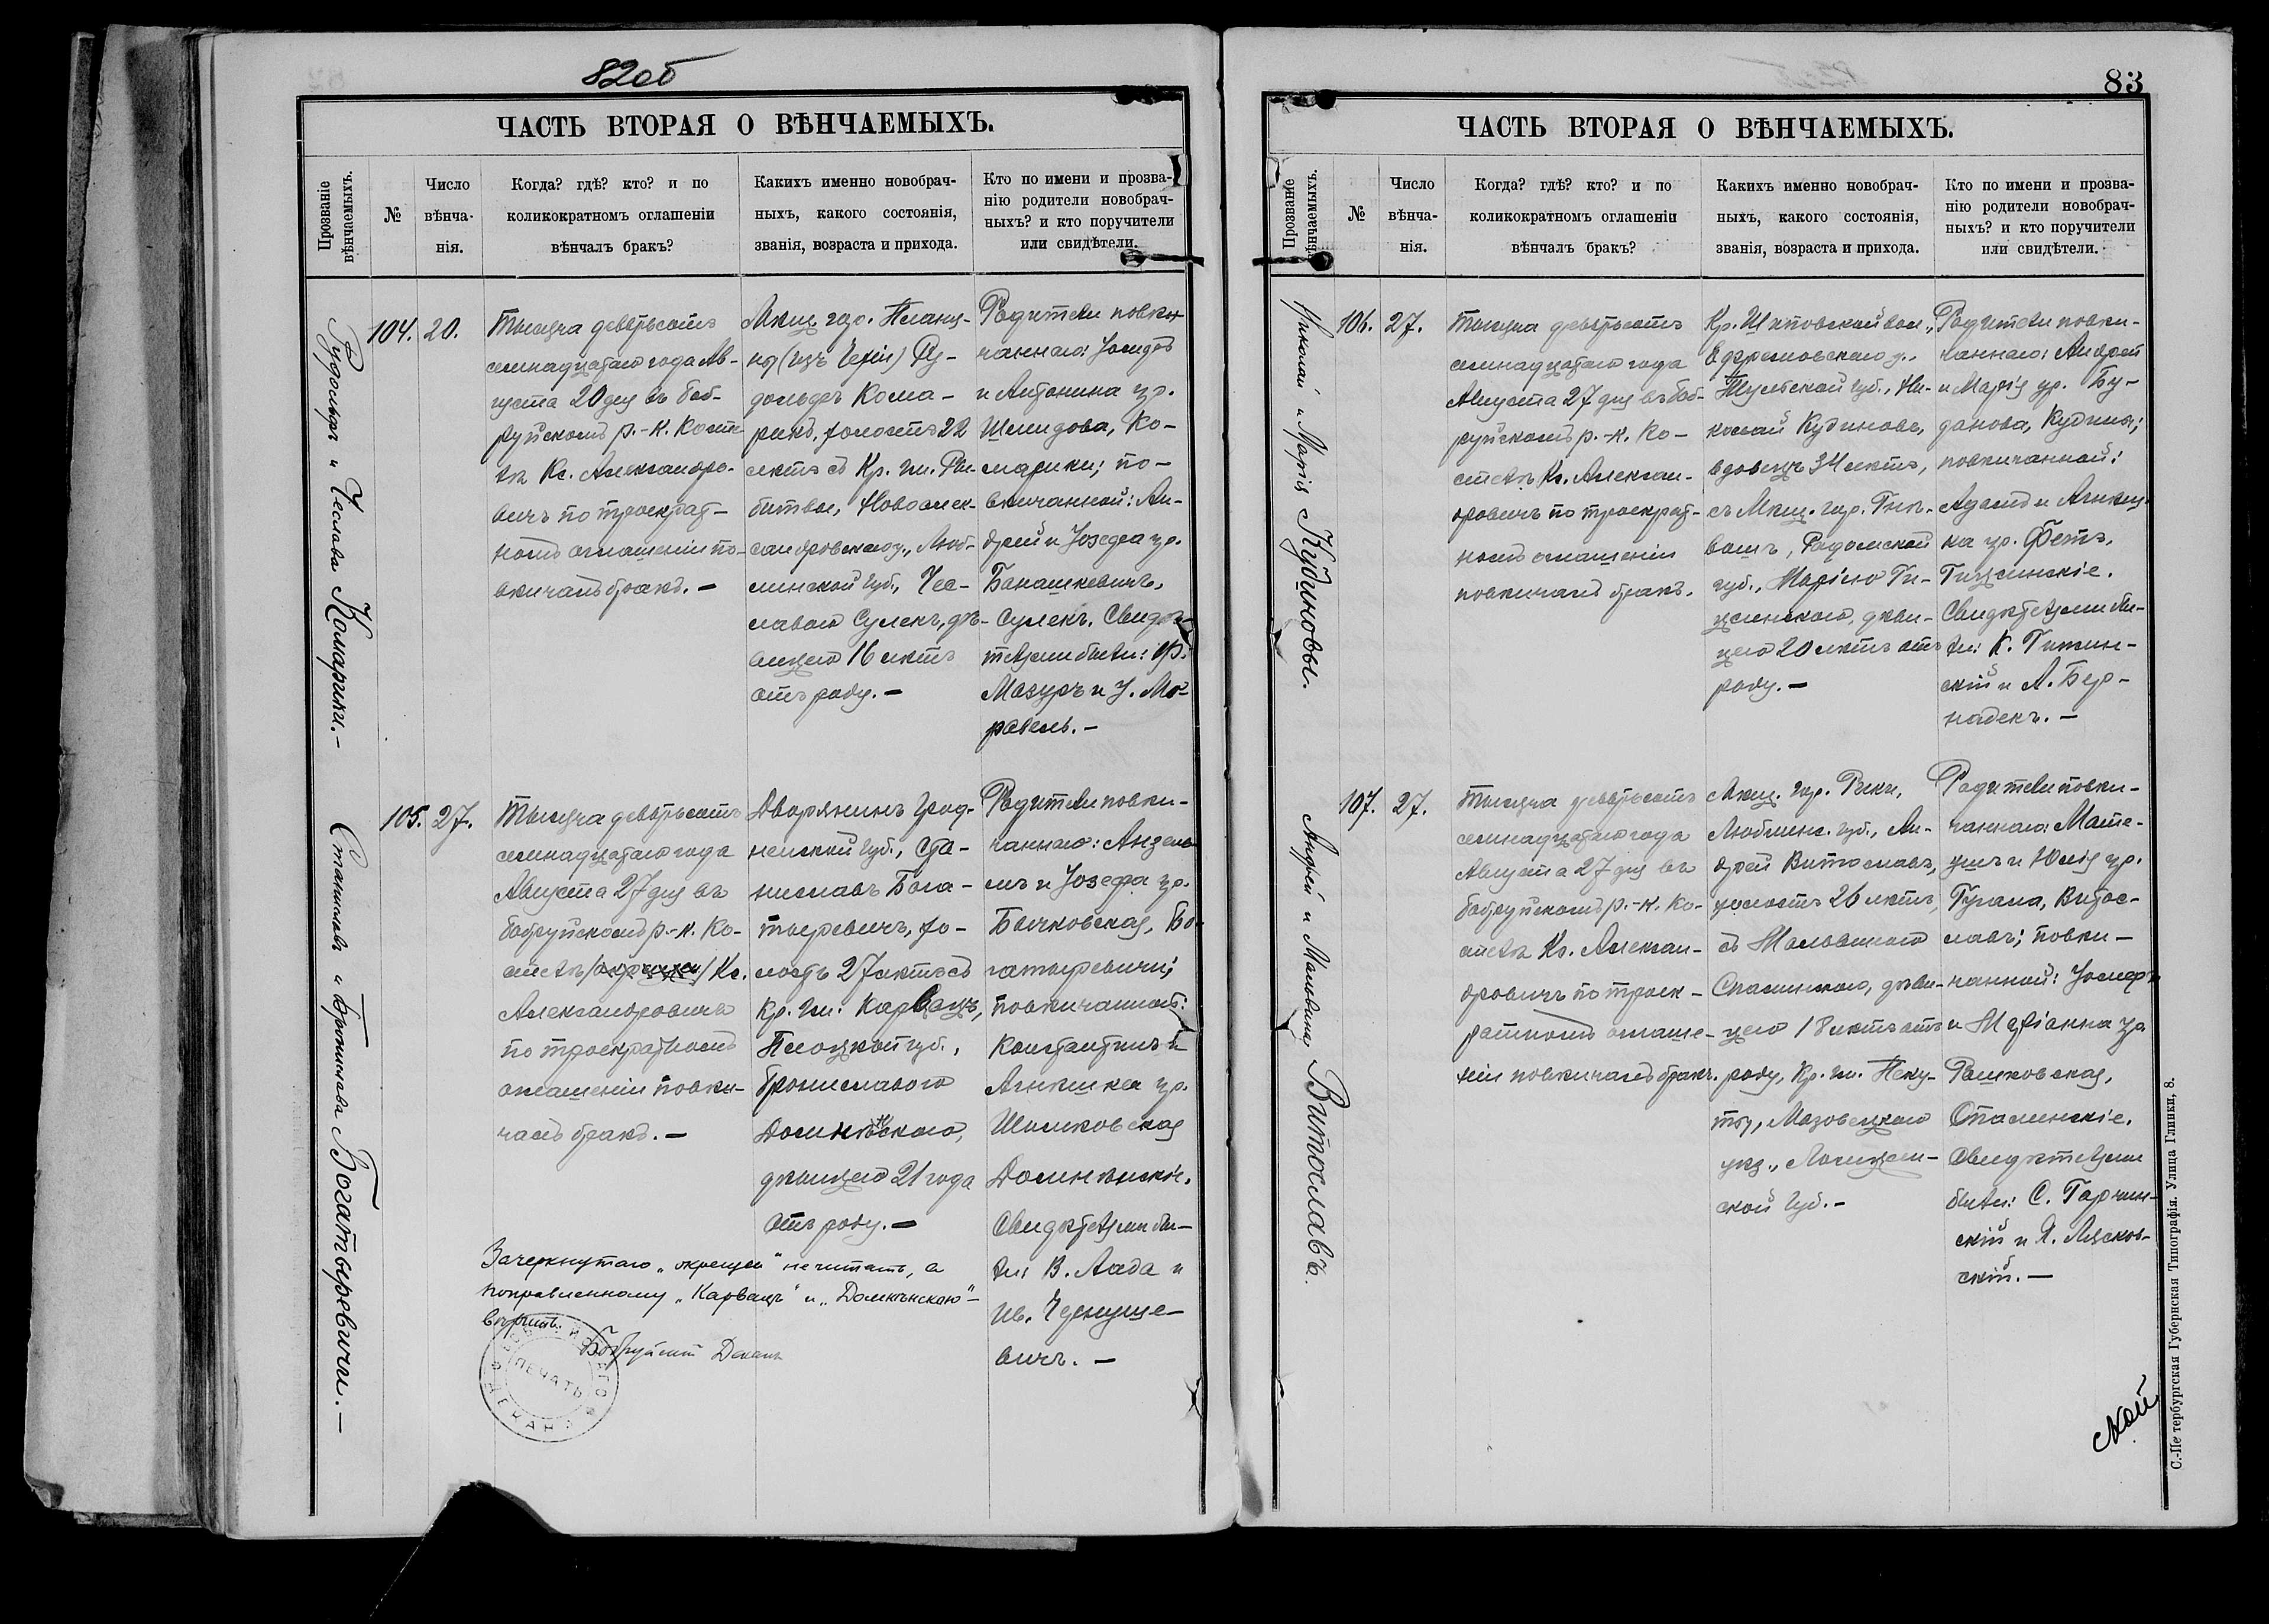 82об
ЧАСТЬ ВТОРАЯ О ВѢНЧАЕМЫХЪ.
Прозваніе
вѣнчаемыхъ.
№
Число
вѣнча-
нія.
Когда? гдѣ? кто? и по
коликократномъ оглашеніи
вѣнчалъ бракъ?
Какихъ именно новобрач-
ныхъ, какого состоянія,
званія, возраста и прихода.
Кто по имени и прозва-
нію родители новобрач-
ныхъ? и кто поручители
или свидѣтели.
Рудольфъ и Чеслава Комарики.—
104.
20.
Тысяча девятьсотъ
семнадцатаго года Ав-
густа 20 дня въ Боб-
руйскомъ р.-к. Косте-
лѣ Кс. Александро-
вичъ по троекрат-
номъ оглашеніи по-
вѣнчалъ бракъ.—
Мѣщ. гор.
Ру-
дольфъ Кома-
рикъ, холостъ 22
лѣтъ съ Кр. гм.
Новоалек-
сандровскаго у., Люб-
линской губ., Чес-
лавою Сулекъ, дѣ-
вицею 16 лѣтъ
отъ роду.—
Родители повѣн-
чаннаго: Іосифъ
и Антонина ур.
Шмидова, Ко-
марики; по-
вѣнчанной: Ан-
дрей и Іозефа ур.
Банашкевичъ,
Сулекъ. Свидѣ-
телями были: Ф.
Мазуръ и І.
105.
27.
Станиславъ и Бронислава Богатыревичи.—
Тысяча девятьсотъ
семнадцатаго года
Августа 27 дня въ
бобруйскомъ р.-к. Ко-
стелѣ Кс.
Александровичъ
по троекратномъ
оглашеніи повѣн-
чалъ бракъ.—
Дворянинъ Грод-
ненской губ., Ста-
ниславъ Бога-
тыревичъ, хо-
лостъ 27 лѣтъ съ
Кр. гм. Карвацъ,
Плоцкой губ.,
Брониславою
дѣвицею 21 года
отъ роду.—
Родители повѣн-
чаннаго: Ансель-
мъ и Іозефа ур.
Бычковская, Бо-
гатыревичи;
повѣнчанной:
Константинъ и
Агнешка ур.
Шимковская
Свидѣтелями бы-
ли: В. Лада и
Ив.
вичъ.—
Зачеркнутаго „окрещен“ не читать, а
поправленному „Карвацъ“ и
вѣрить.
Бобруйскій Деканъ
ПЕЧАТЬ
ДЕКАНА
83
ЧАСТЬ ВТОРАЯ О ВѢНЧАЕМЫХЪ.
Прозваніе
вѣнчаемыхъ.
№
Число
вѣнча-
нія.
Когда? гдѣ? кто? и по
коликократномъ оглашеніи
вѣнчалъ бракъ?
Какихъ именно новобрач-
ныхъ, какого состоянія,
званія, возраста и прихода.
Кто по имени и прозва-
нію родители новобрач-
ныхъ? и кто поручители
или свидѣтели.
Николай и Марія Кудиновы.
106.
27.
Тысяча девятьсотъ
семнадцатаго года
Августа 27 дня въ Боб-
руйскомъ р.-к. Ко-
стелѣ Кс. Алексан-
дровичъ по троекрат-
номъ оглашеніи
повѣнчалъ бракъ.
Кр. Шиповской вол.,
Ефремовскаго у.,
Тульской губ., Ни-
колай Кудиновъ,
вдовецъ 34 лѣтъ,
съ Мѣщ. гор.
Радомской
губ., Маріею
дѣви-
цею 20 лѣтъ отъ
роду.—
Родители повѣн-
чаннаго: Андрей
и Марія ур. Бу-
данова, Кудины;
повѣнчанной:
Адамъ и Агнеш-
ка ур. Фетъ,
Свидѣтелями бы-
ли: К.
скій и А. Бер-
надекъ.—
Андрей и Мальвина Витославъ.
107.
27.
Тысяча девятьсотъ
семнадцатаго года
Августа 27 дня въ
бобруйскомъ р.-к. Ко-
стелѣ Кс. Алексан-
дровичъ по троек-
ратномъ оглаше-
ніи повѣнчалъ бракъ.
Мѣщ. гор.
Люблинс. губ., Ан-
дрей Витославъ,
холостъ 26 лѣтъ,
съ Мальвиною
дѣви-
цею 18 лѣтъ отъ
роду, Кр. гм.
Мазовецкаго
уѣз., Ломжин-
ской губ.—
Родители повѣн-
чаннаго: Мате-
ушъ и Юлія ур.
Витос-
лавъ; повѣн-
чанной: Іосифъ
и Маріанна ур.
Свидѣтелями
были: С. Гарчин-
скій и Я. Лясков-
скій.—
С.-Петербургская Губернская Типографія. Улица Глинки, 8.